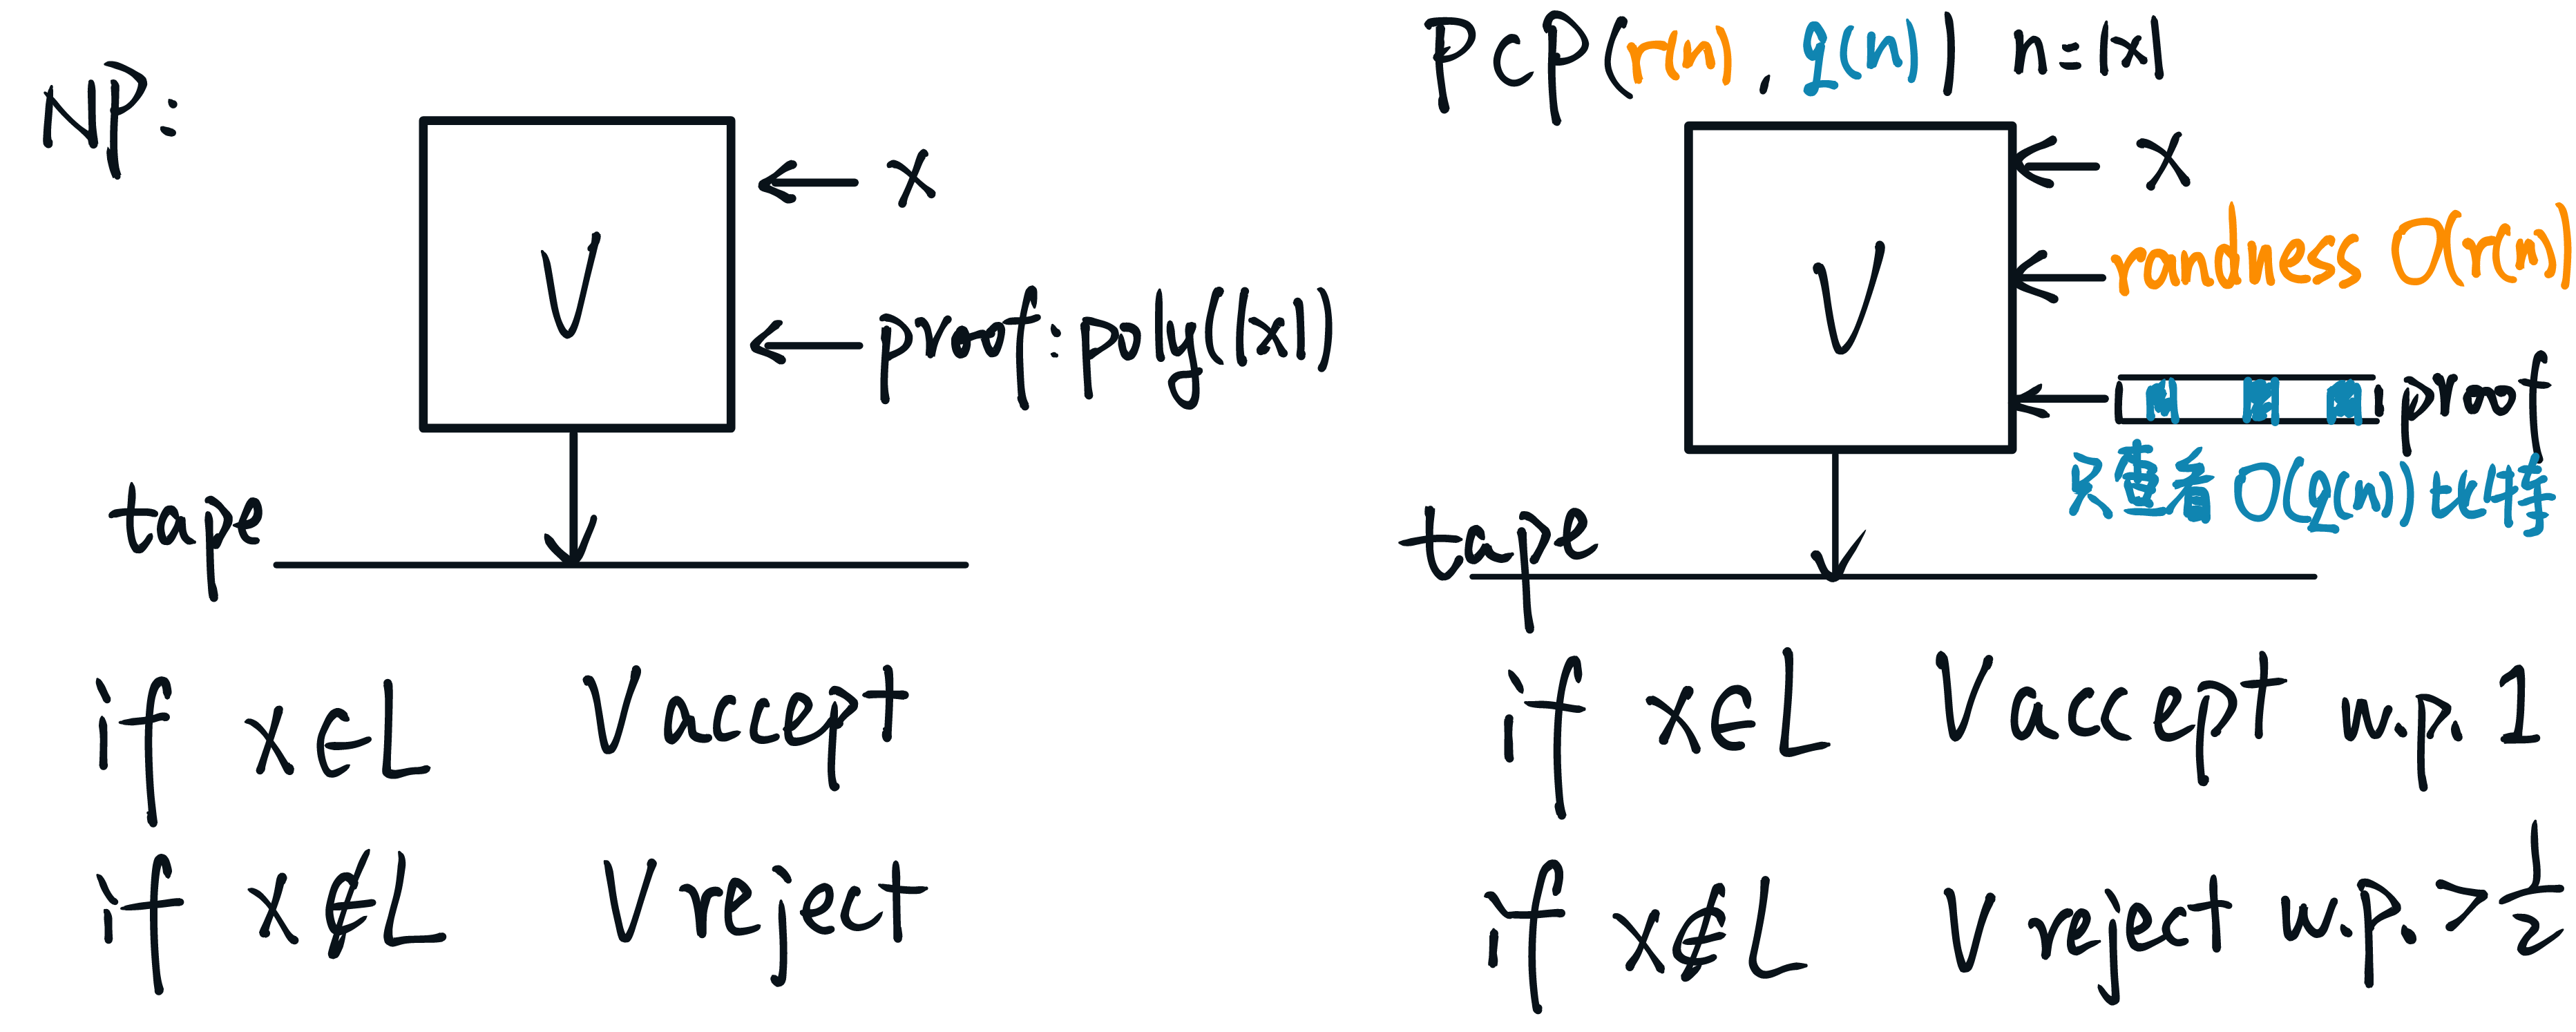 NP:
V
x
proof: poly(|x|)
tape
if x∈L V accept
if x∉L V reject
PCP(r(n), q(n)) n=|x|
V
x
randness O(r(n))
proof
只查看 O(q(n)) 比特
tape
if x∈L V accept w.p. 1
if x∉L V reject w.p. > 1/2